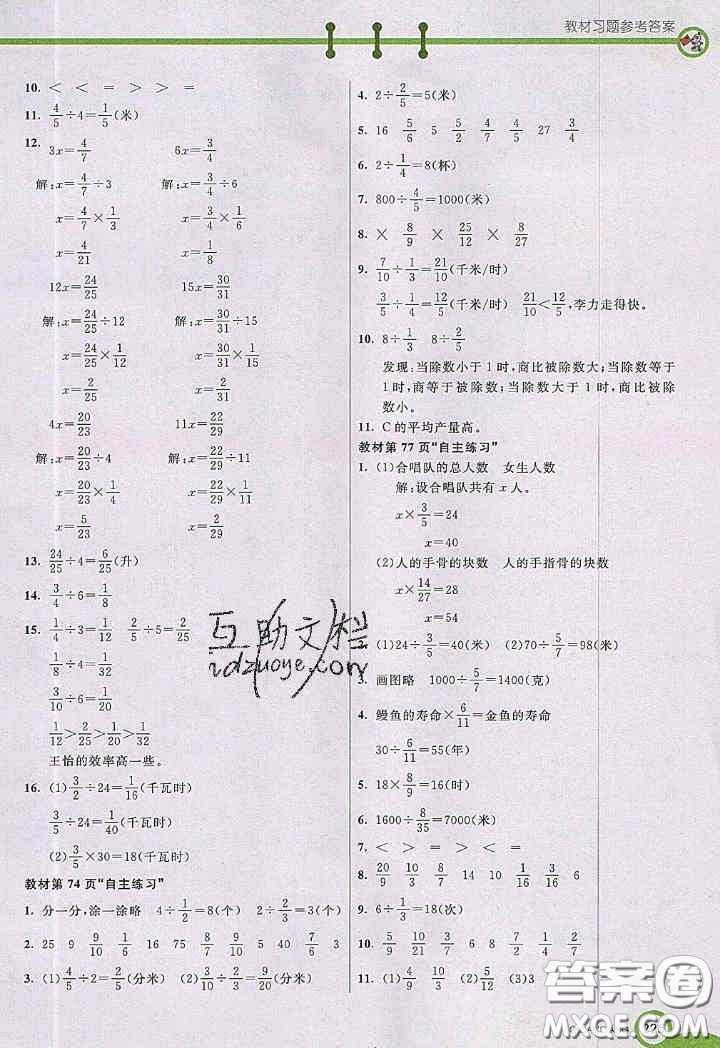 教材习题参考答案
10. < < = > > =
11. 4/5÷4=1/5(米)
12. 3x=4/7 6x=3/4
解:x=4/7÷3 解:x=3/4÷6
x=4/7×1/3 x=3/4×1/6
x=4/21 x=1/8
12x=24/25 15x=30/31
解:x=24/25÷12 解:x=30/31÷15
x=24/25×1/12 x=30/31×1/15
x=2/25 x=2/31
4x=20/23 11x=22/29
解:x=20/23÷4 解:x=22/29÷11
x=20/23×1/4 x=22/29×1/11
x=5/23 x=2/29
13. 24/25÷4=6/25(升)
14. 3/4÷6=1/8
15. 1/4÷3=1/12 2/5÷5=2/25
3/10÷6=1/20
1/12>2/25>1/20
王怡的效率高一些。
16. (1)3/2÷24=1/16(千瓦时)
3/5÷24=1/40(千瓦时)
(2)3/5×30=18(千瓦时)
教材第 74 页“自主练习”
1. 分一分,涂一涂略 4÷1/2=8(个) 2÷2/3=3(个)
2. 25 9 9/10 1/16 75 8/7 9/10 5 40 6/7 3
3. (1)4/5÷2=2/5(分米) (2)3/10÷2/3=9/20(分米)
4. 2÷2/5=5(米)
5. 16 5/6 5 5/2 4/5 27 3/4
6. 2÷1/4=8(杯)
7. 800÷4/5=1000(米)
8. × 8/9 × 25/12 × 8/27
9. 7/10÷1/3=21/10(千米/时)
3/5÷1/4=12/5(千米/时) 21/10<12/5,李力走得快。
10. 8÷1/3 8÷2/5
发现:当除数小于 1 时,商比被除数大;当除数等于
1 时,商等于被除数;当除数大于 1 时,商比被除
数小。
11. C的平均产量高。
教材第 77 页“自主练习”
1. (1)合唱队的总人数 女生人数
解:设合唱队共有 x 人。
x×3/5=24
x=40
(2)人的手骨的块数 人的手指骨的块数
x×14/27=28
x=54
2. (1)24÷3/5=40(米) (2)70÷5/7=98(米)
3. 画图略 1000÷5/7=1400(克)
4. 鳗鱼的寿命×6/11=金鱼的寿命
30÷6/11=55(年)
5. 18×8/9=16(米)
6. 1600÷8/35=7000(米)
7. < > = > < =
8. 20/9 10/3 2/9 15/2 18 1/10 1/6 4/15
9. 6÷1/3=18(次)
10. 5/9 4/9 6 8 7/2 1/2 2/7
11. (1)4/9 10/3 (2)5/12 (3)3
互助文档
idzuoye.com
答案圈
MXQE.COM